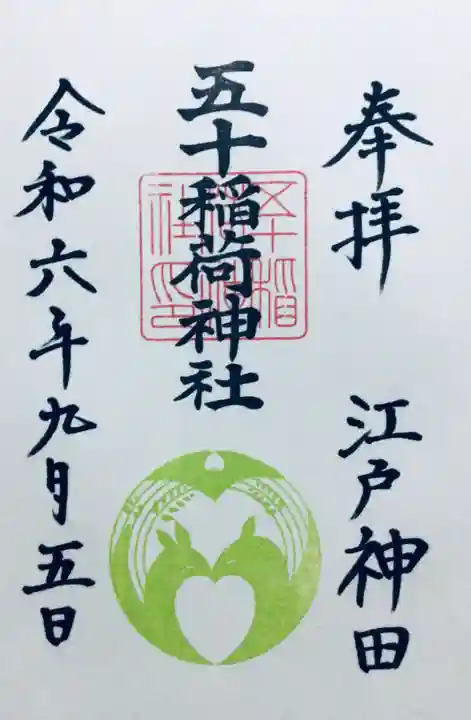 奉拝 江戸神田
五十稲荷神社
令和六年九月五日